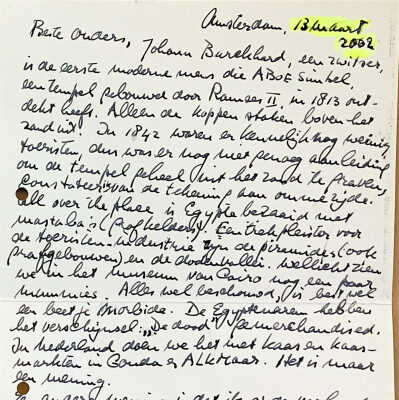 Amsterdam, 13 maart
2002
Beste ouders, Johann Burckhard, een zwitser,
is de eerste moderne mens die ABOE Simbel,
een tempel gebouwd door Ramses II, in 1813 ont-
dekt heeft. Alleen de koppen staken boven het
zand uit. In 1842 waren er kennelijk nog weinig
toeristen, dus was er nog niet genoeg aanleiding
om de tempel geheel uit het zand te graven,
constateer ik van de tekening aan ommezijde.
all over the place is Egypte bezaaid met
mastaba's (grafkelders). Een trekpleister voor
de toeristen-industrie zijn de piramides (ook
grafgebouwen) en de dodenvallei. wellicht zien
we in het museum van Cairo nog een paar
mummies. Alles wel beschouwd, is best wel
een beetje morbide. De Egyptenaren hebben
het verschijnsel: "De dood" gemerchandised.
In nederland doen we het met kaas en kaas-
markten in Gouda en Alkmaar. Het is maar
een mening.